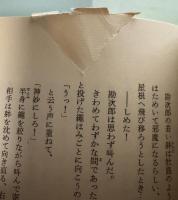 勘次郎の着い
はためいて邪魔になららしい、
屋根へ飛び移ろうとしたとき、
――しめた！
勘次郎は思わず叫んだ。
きわめてわずかな間であった
と投げた縄はみごとに向こうの
「うっ！」
と云う声に重ねて、
「神妙にしろ！」
半身に縄を絞りながら叫んで
相手は絆を沈めて向き直る、右